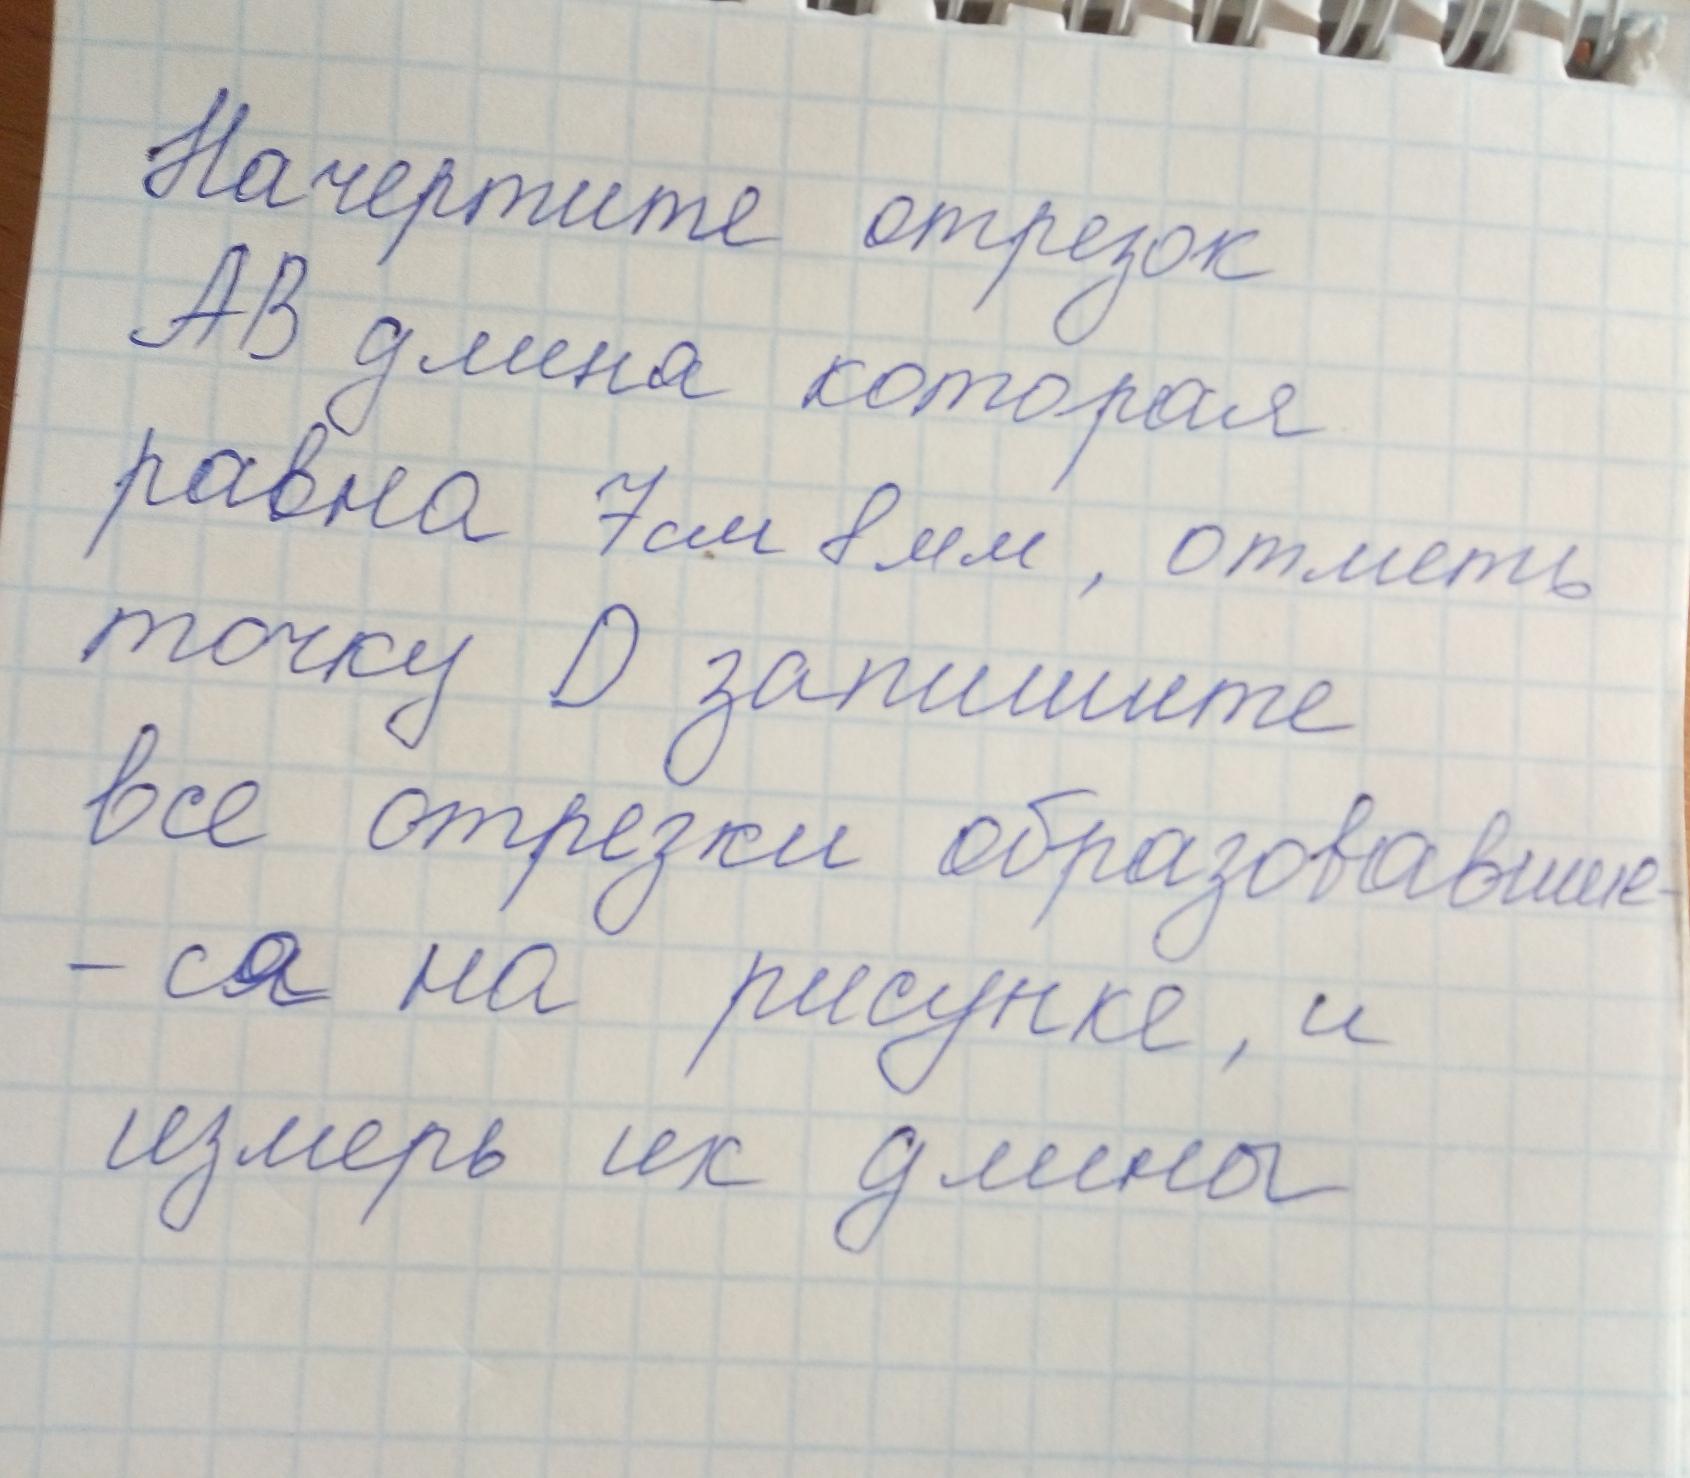 Начертите отрезок
АВ длина которая
равна 7см 8мм, отметь
точку D запишите
все отрезки образовавшие-
-ся на рисунке, и
измерь их длины